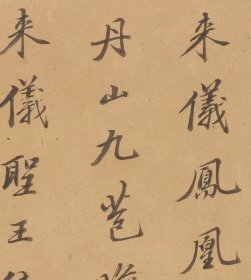 来儀鳳凰
丹山九苞
来儀聖王